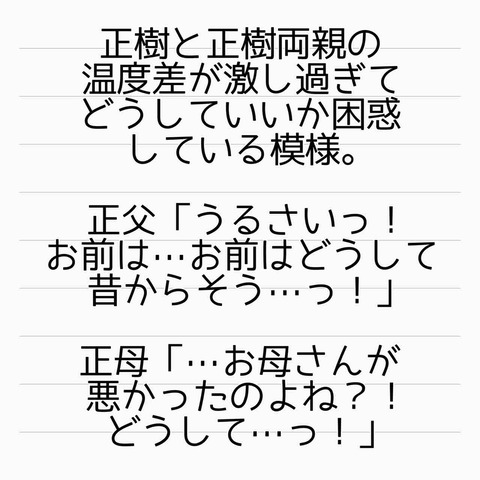 正樹と正樹両親の
温度差が激し過ぎて
どうしていいか困惑
している模様。
正父「うるさいっ！
お前は…お前はどうして
昔からそう…っ！」
正母「…お母さんが
悪かったのよね？！
どうして…っ！」